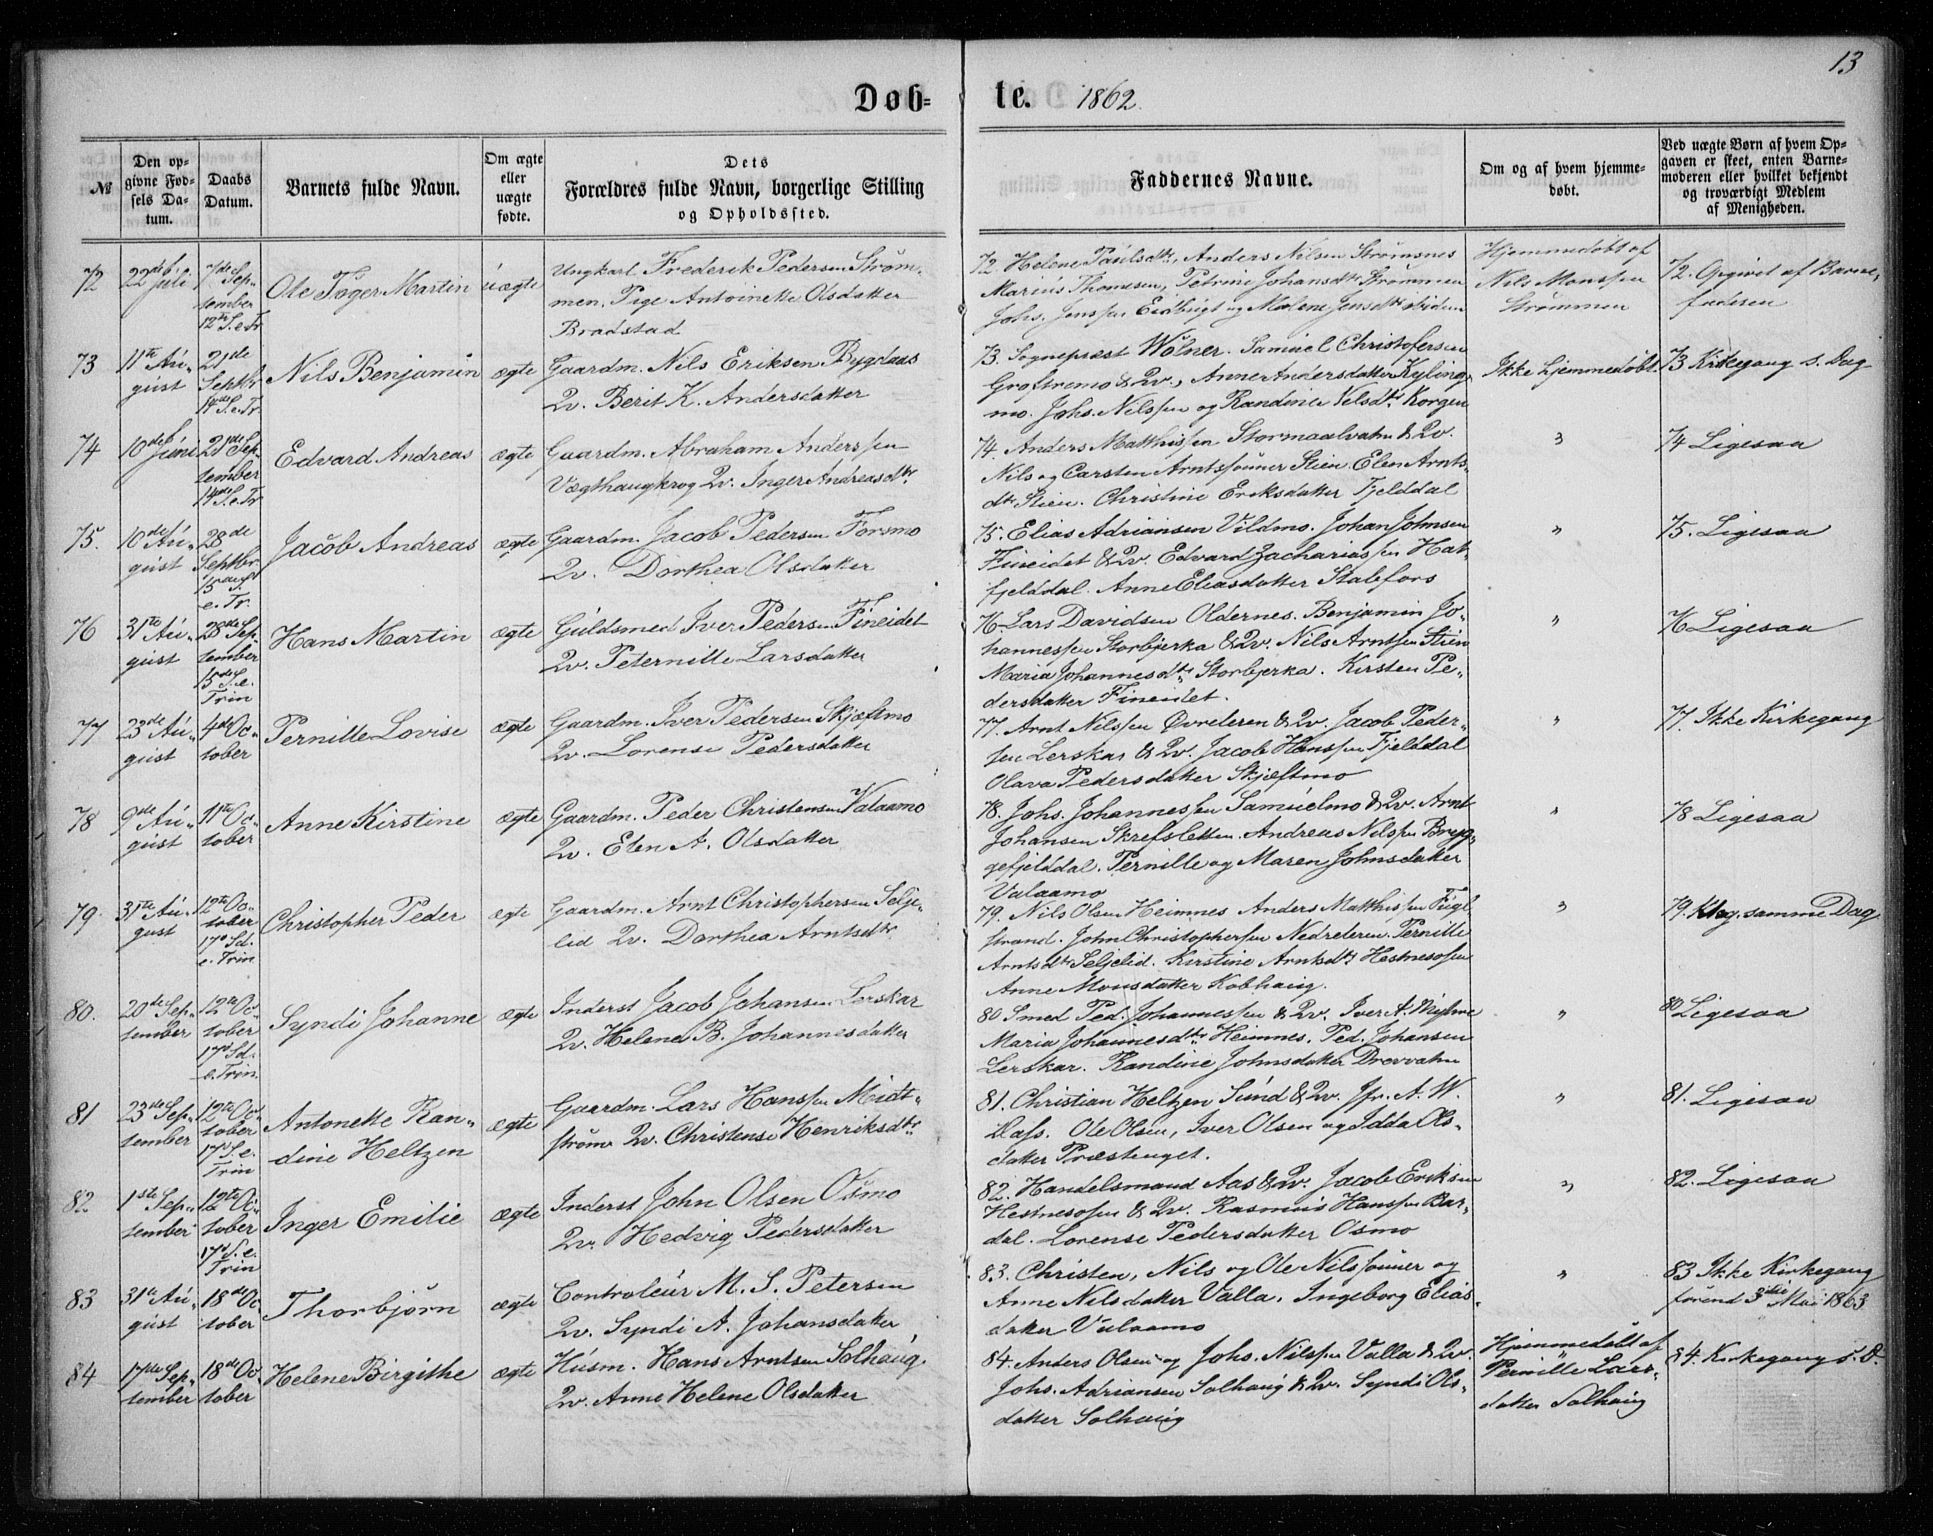 13
Døb= te. 1862.
№
Den op=
givne Fød=
sels Da=
tum.
Daabs
Datum.
Barnets fulde Navn.
Om ægte
eller
uægte
fødte.
Dets
Forældres fulde Navn, borgerlige Stilling
og Opholdssted.
Faddernes Navne.
Om og af hvem hjemme=
døbt.
Ved uægte Børn af hvem Op=
gaven er skeet, enten Barne=
moderen eller hvilket bekjendt
og troværdigt Medlem
af Menigheden.
72
22de Juli
7de Sep=
tember
12te S.e.Tr.
Ole Toger Martin
uægte
Ungkarl Frederik Pedersen Strøm=
men, Pige Antoinette Olsdatter
Bradstad
72. Helene Paulsdtr, Anders Nilsen Strømsnes
Marius Thomesen, Petrine Johansdtr Strømmen
Johs. Jenssen Eidbugt og Malene Jensdtr ibidem
Hjemmedøbt af
Nils Monssen
Strømmen
72. Opgivet af Barne=
faderen
73
11te Au=
gust
21de
Septbr
14de S.e.Tr.
Nils Benjamin
ægte
Gaardm. Nils Eriksen Bygdaas
Qv. Berit K. Andersdatter
73. Sognepræst Wolner. Samuel Christofersen
Groftremo & Qv., Anne Andersdatter Kyling=
mo. Johs. Nilssen og Randine Nilsdtr Korgen
Ikke hjemmedøbt
73 Kirkegang s. Dag
74
10de Juni
21de Sep=
tember
14de S.e.Tr
Edvard Andreas
ægte
Gaardm. Abraham Anderssen
Vægthaugkrog Qv. Inger Andreasdtr
74. Anders Matthissen Stormaalvatn & Qv.
Nils og Carsten Arntssønner Stien Elen Arnts=
dtr Stien. Christine Eriksdatter Fjelddal
"
74 Ligesaa
75.
10de Au=
gust
28de
Septbr
15 S.
e. Tr.
Jacob Andreas
ægte
Gaardm. Jacob Pedersen Forsmo
Qv. Dorthea Olsdatter
75. Elias Adriansen Vildmo. Johan Johnsen
Fineidet & Qv. Edvard Zachariassen Hat=
fjelddal. Anne Eliasdatter Stalefors
"
75. Ligesaa
76
31te Au=
gust
28de Sep=
tember
15de S.e.
Trin
Hans Martin
ægte
Guldsmed Iver Pedersen Fineidet
Qv. Peternille Larsdatter
76 Lars Davidsen Oldernes. Benjamin Jo=
hannessen Storbjerka & Qv. Nils Arntsen Stien
Maria Johannesdtr Storbjerka. Kirsten Pe=
dersdatter Fineidet.
"
76 Ligesaa
77
23de Au=
gust
4de Oc=
tober
Pernille Lovise
ægte
Gaardm. Iver Pedersen Skjæftmo
Qv. Lorense Pedersdatter
77. Arnt Nilssen Øvreleren & Qv. Jacob Peder=
sen Lerskar & Qv. Jacob Hanssen Fjelddal
Olava Pedersdatter Skjæftmo
"
77. Ikke Kirkegang
78
9de Au=
gust
11te Oc=
tober
Anne Kirstine
ægte
Gaardm. Peder Christensen Valaamo
Qv. Elen A. Olsdatter
78. Johs. Johannessen Samuelmo & Qv. Arnt
Johansen Skrefsletten. Andreas Nilssen Bryg=
gefjelddal. Pernille og Maren Johnsdatter
Valaamo
"
78 Ligesaa
79.
31te Au=
gust
12te Oc=
tober
17d Sd.
e. Trin
Christopher Peder
ægte
Gaardm. Arnt Christophersen Selje=
lid Qv. Dorthea Arntsdtr
79. Nils Olsen Heimnes Anders Matthissen Fugl
strand. John Christophersen Nedreleren. Pernille
Arntsdtr Seljelid. Kirstine Arntsdtr Hestnesosen
Anne Monsdatter Kobhaug.
"
79. Kkg. samme Dag
80.
20de Sep=
tember
12te Oc=
tober
17d Sd.
e. Trin.
Syndi Johanne
ægte
Inderst Jacob Johansen Lerskar
Qv. Helene B. Johannesdatter
80 Smed Ped. Johannessen & Qv. Iver A.
Maria Johannesdtr Heimnes. Ped. Johansen
Lerskar. Randine Johnsdatter Drevvatn
"
80 Ligesaa
81
23de Sep=
tember
12te Oc=
tober
17d S. e.
Trin
Antonette Ran=
dine Heltzen
ægte
Gaardm. Lars Hanssen Midt=
strøm Qv. Christense Henriksdtr
81. Christian Heltzen Sund & Qv. Jfr. A. W.
Dass. Ole Olsen, Iver Olsen og Idda Ols=
datter Præstenget.
"
81. Ligesaa
82
1ste Sep=
tember
12te Oc=
tober
17d S. e.
Trin
Inger Emilie
ægte
Inderst John Olsen Osmo
Qv. Hedvig Pedersdatter
82. Handelsmand Aas & Qv. Jacob Eriksen
Hestnesosen & Qv. Rasmus Hanssen Bar=
dal. Lorense Pedersdatter Osmo
"
82. Ligesaa
83
31te Au=
gust
18de Oc
tober
Thorbjørn
ægte
Controleur M. S. Petersen
Qv. Syndi A. Johansdatter
83. Christen, Nils og Ole Nilssønner og
Anne Nilsdatter Valla. Ingeborg Elias=
datter Valaamo
"
83 Ikke Kirkegang
førend 3die Mai 1863
84
17de Sep=
tember
18de Oc
tober
Helene Birgithe
ægte
Husm. Hans Arntsen Solhaug.
Qv. Anne Helene Olsdatter
84. Anders Olsen og Johs. Nilssen Valla & Qv.
Johs. Adriansen Solhaug & Qv. Syndi Ols=
datter Solhaug
Hjemmedøbt af
Pernille Lars=
datter Solhaug
84. Kirkegang s. D.